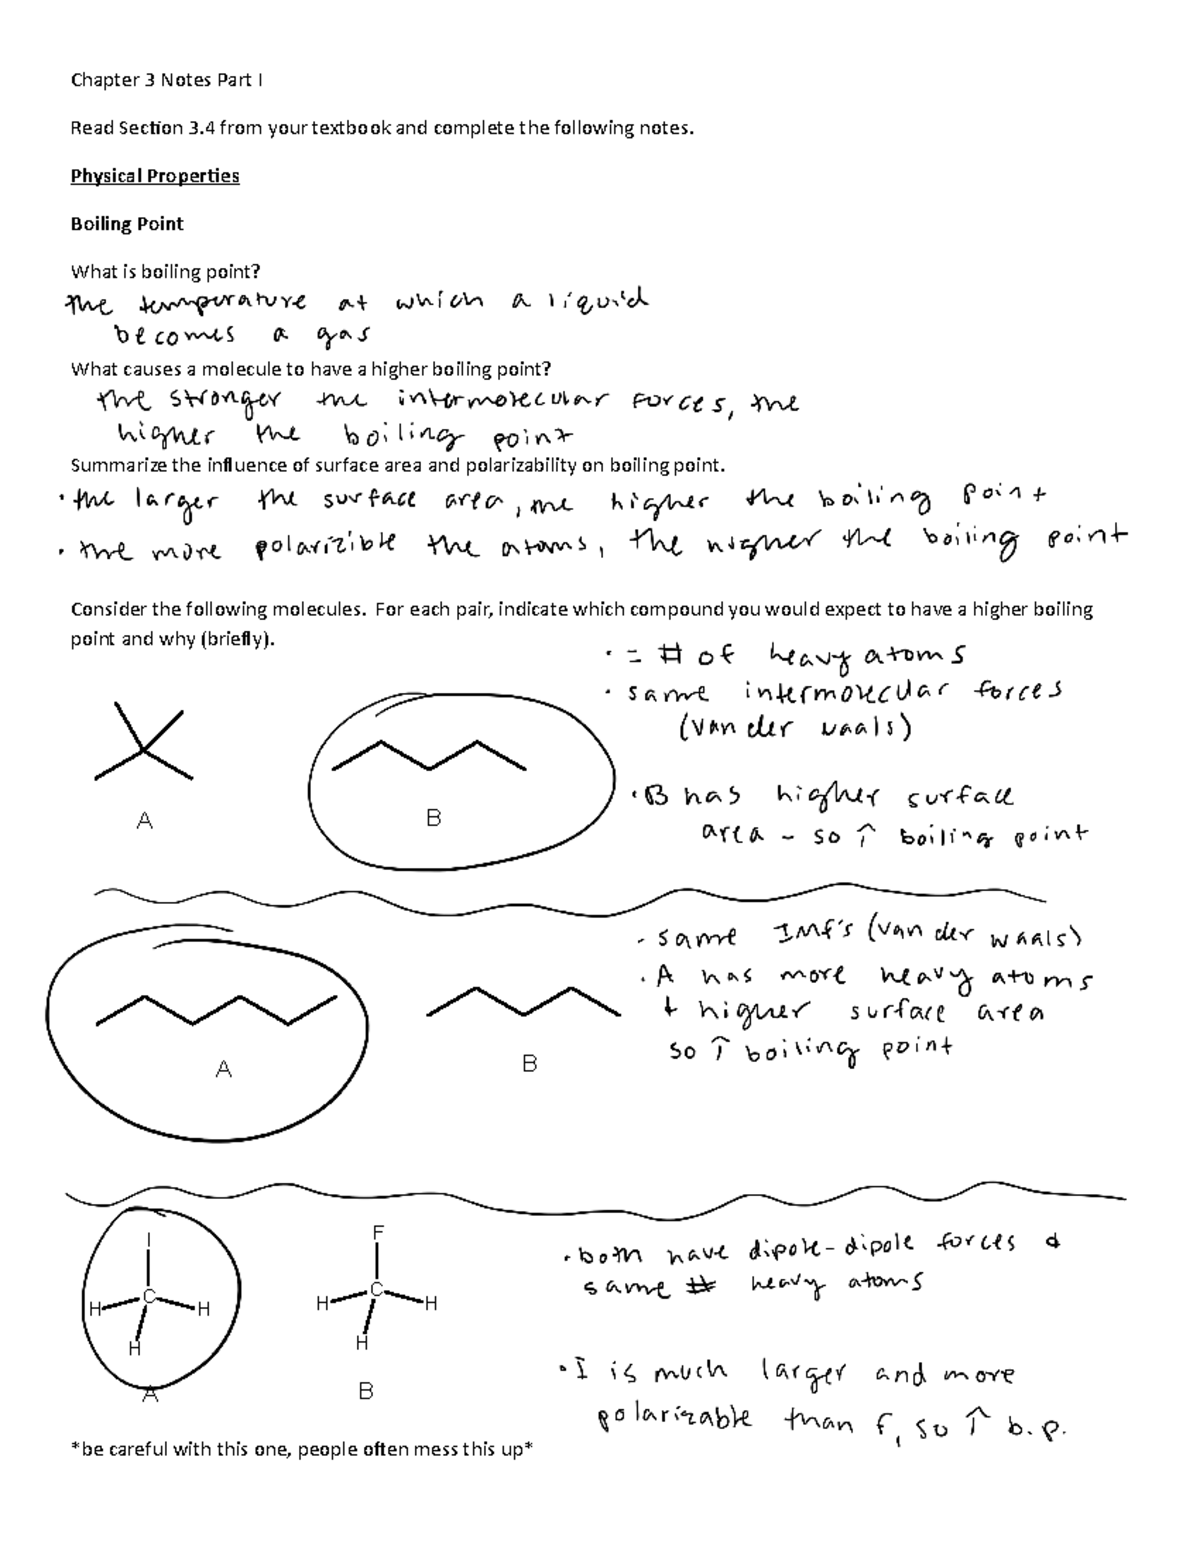 Chapter 3 Notes Part I
Read Section 3.4 from your textbook and complete the following notes.
Physical Properties
Boiling Point
What is boiling point?
the temperature at which a liquid
becomes a gas
What causes a molecule to have a higher boiling point?
the stronger the intermolecular forces, the
higher the boiling point
Summarize the influence of surface area and polarizability on boiling point.
• the larger the surface area, the higher the boiling point
• the more polarizible the atoms, the higher the boiling point
Consider the following molecules. For each pair, indicate which compound you would expect to have a higher boiling
point and why (briefly).
• = # of heavy atoms
• same intermolecular forces
(van der waals)
A
B
• B has higher surface
area - so ↑ boiling point
- same IMF's (van der waals)
• A has more heavy atoms
+ higher surface area
so ↑ boiling point
A
B
I
C
H
H
H
A
F
C
H
H
H
B
• both have dipole-dipole forces &
same # heavy atoms
• I is much larger and more
polarizable than F, so ↑ b.p.
*be careful with this one, people often mess this up*